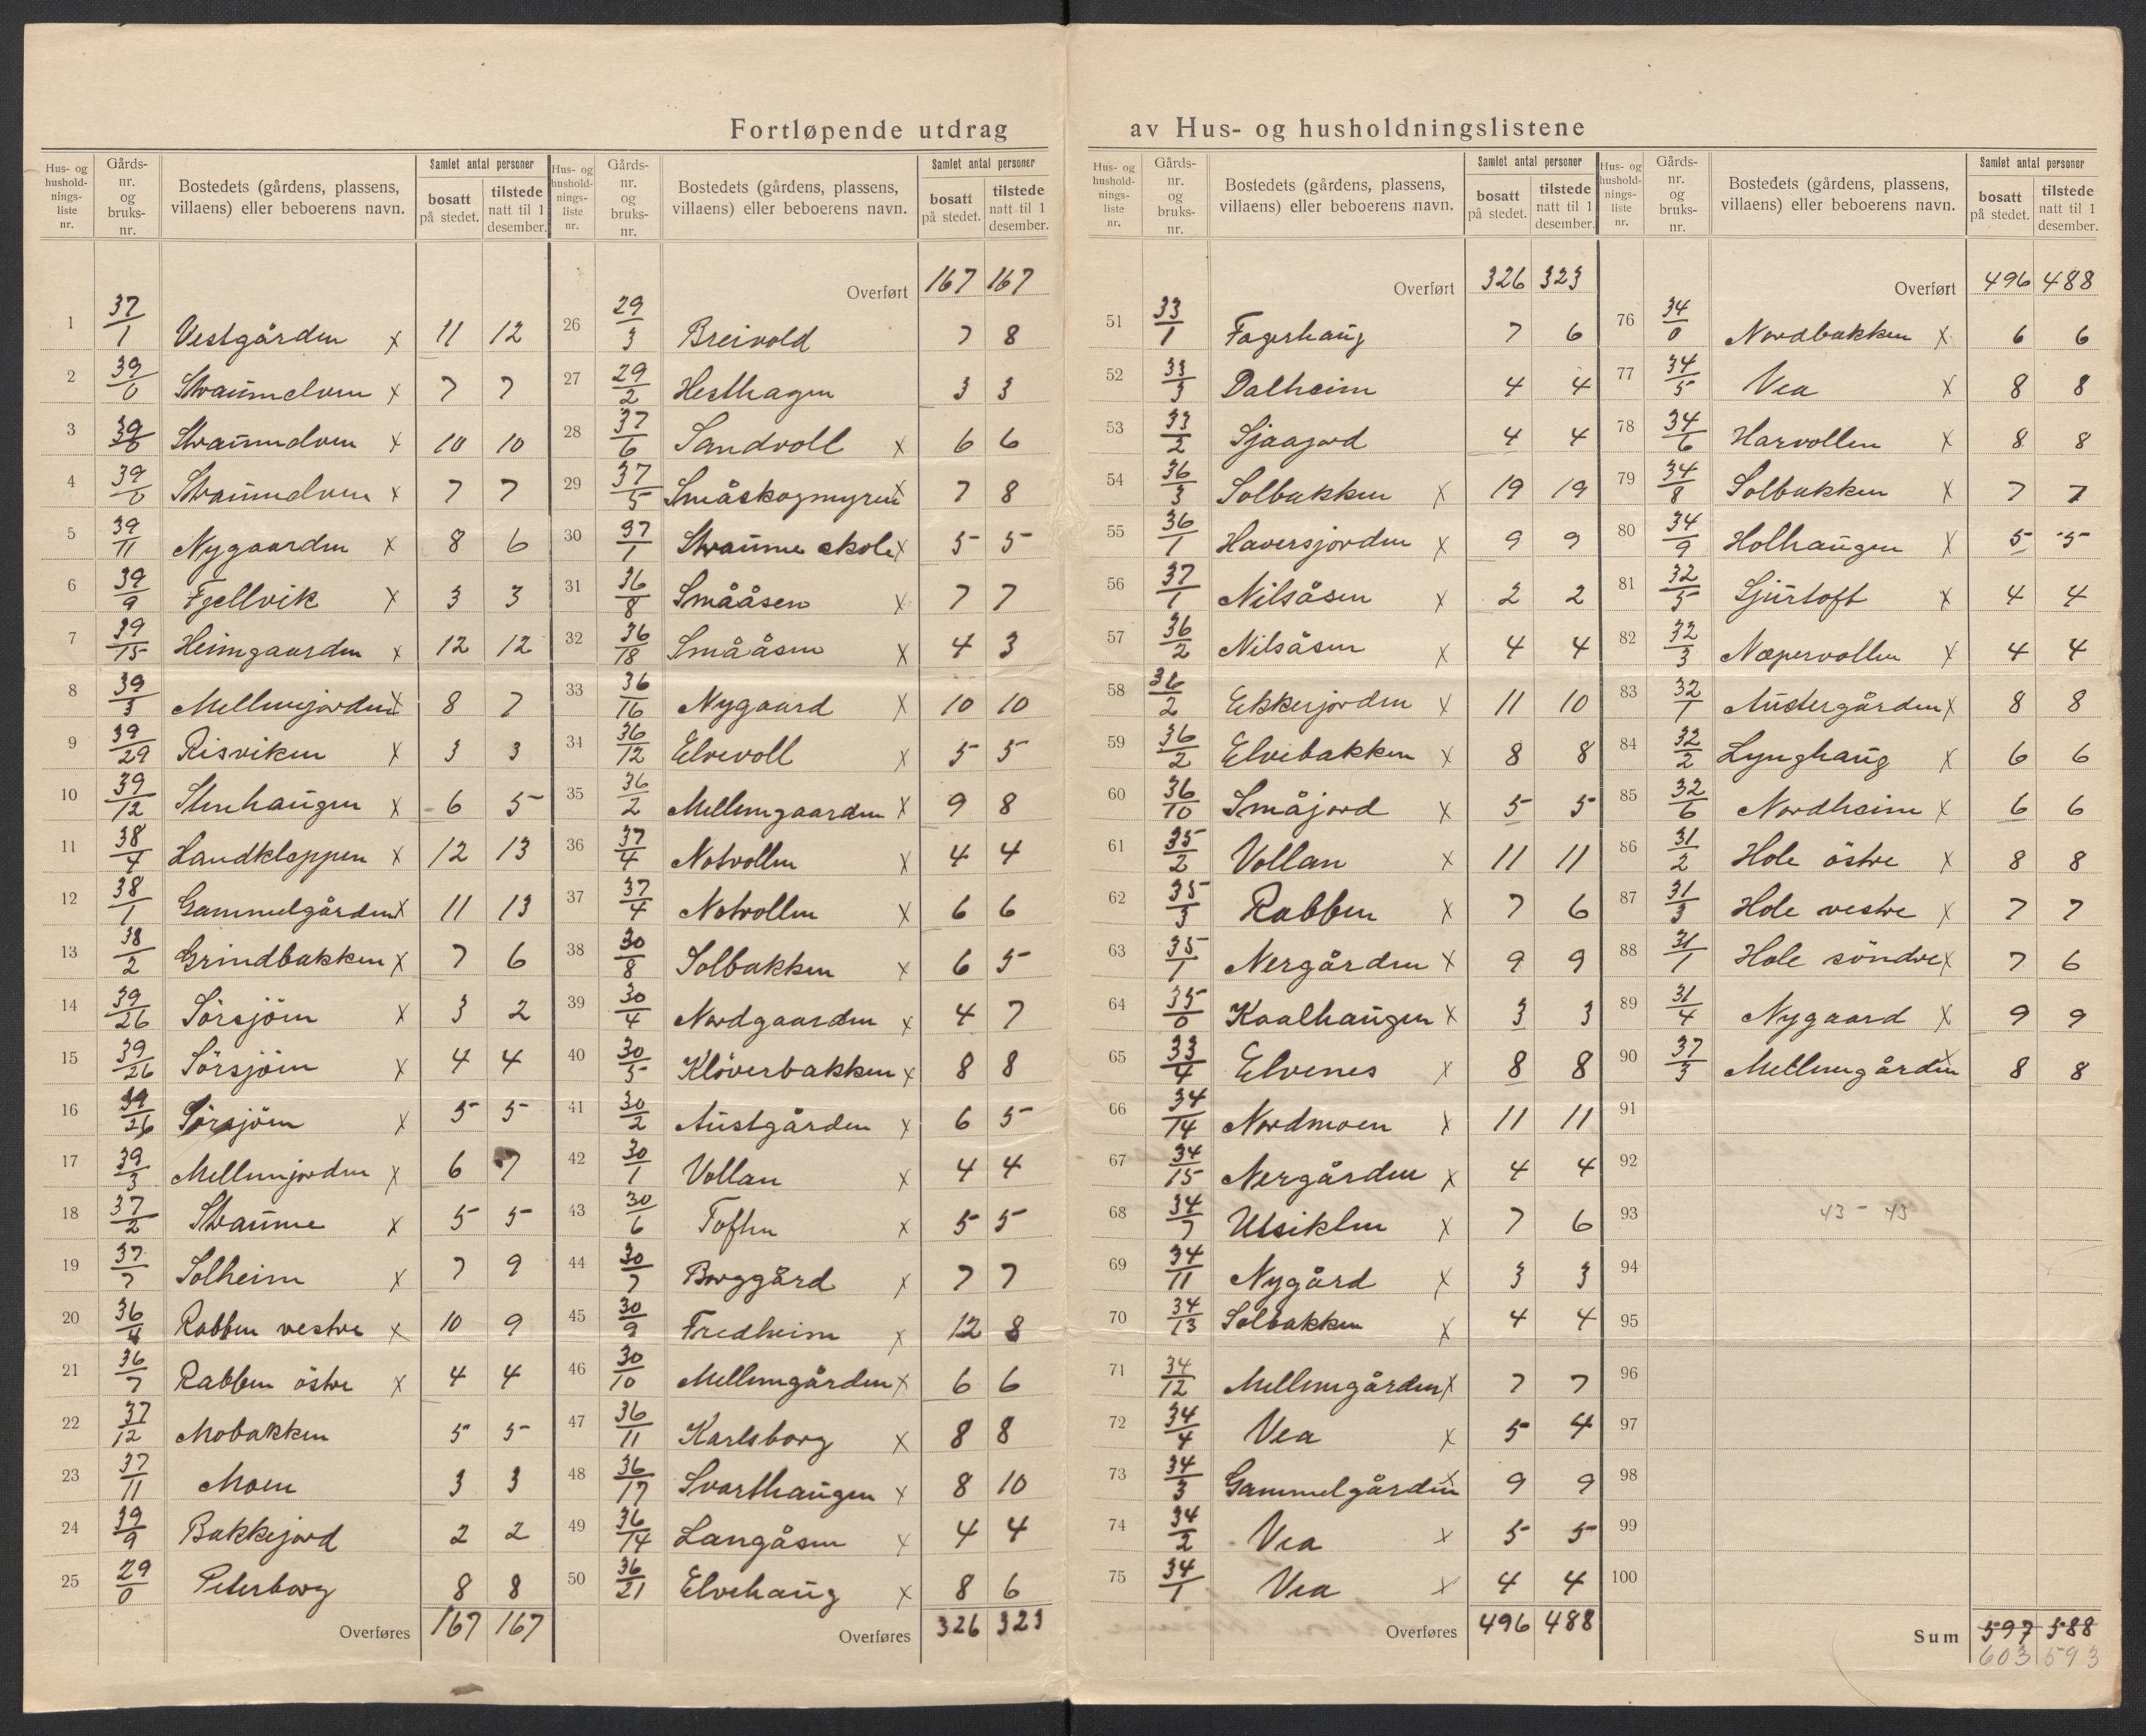 Fortløpende utdrag av Hus- og husholdningslistene
Hus- og husholdningsliste nr. Gårds-nr. og bruks-nr. Bostedets (gårdens, plassens, villaens) eller beboerens navn. Samlet antal personer bosatt på stedet. tilstede natt til 1 desember.
1 37/1 Vestgården x 11 12
2 39/0 Straumelven x 7 7
3 39/0 Straumelven x 10 10
4 39/0 Straumelven x 7 7
5 39/11 Nygaarden x 8 6
6 39/9 Fjellvik x 3 3
7 39/15 Heimgaarden x 12 12
8 39/3 Mellemjorden x 8 7
9 39/29 Risviken x 3 3
10 39/12 Stenhaugen x 6 5
11 38/4 Landkleppen x 12 13
12 38/1 Gammelgården x 11 13
13 38/2 Grindbakken x 7 6
14 39/26 Sörsjöen x 3 2
15 39/26 Sörsjöen x 4 4
16 39/26 Sörsjöen x 5 5
17 39/3 Mellemjorden x 6 7
18 37/2 Straume x 5 5
19 37/7 Solheim x 7 9
20 36/4 Rabben vestre x 10 9
21 36/7 Rabben östre x 4 4
22 37/12 Mobakken 5 5
23 37/11 Moen 3 3
24 39/9 Bakkejord 2 2
25 29/0 Petersborg 8 8
Overføres 167 167
Hus- og husholdningsliste nr. Gårds-nr. og bruks-nr. Bostedets (gårdens, plassens, villaens) eller beboerens navn. Samlet antal personer bosatt på stedet. tilstede natt til 1 desember.
Overført 167 167
26 29/3 Breivold 7 8
27 29/2 Hesthagen 3 3
28 37/6 Sandvoll x 6 6
29 37/5 Småskogmyren x 7 8
30 37/1 Straume skole x 5 5
31 36/8 Smååsen x 7 7
32 36/18 Smååsen x 4 3
33 36/16 Nygaard x 10 10
34 36/12 Elvevoll x 5 5
35 36/2 Mellemgaarden x 9 8
36 37/4 Notvollen x 4 4
37 37/4 Notvollen x 6 6
38 30/8 Solbakken x 6 5
39 30/4 Nordgaarden x 4 7
40 30/5 Klöverbakken x 8 8
41 30/2 Austgården x 6 5
42 30/1 Vollan x 4 4
43 30/6 Toften x 5 5
44 30/7 Borggård x 7 7
45 30/9 Fredheim x 12 8
46 30/10 Mellemgården x 6 6
47 36/11 Karlsborg x 8 8
48 36/17 Svarthaugen x 8 10
49 36/14 Langåsen x 4 4
50 36/21 Elvehaug x 8 6
Overføres 326 323
Hus- og husholdningsliste nr. Gårds-nr. og bruks-nr. Bostedets (gårdens, plassens, villaens) eller beboerens navn. Samlet antal personer bosatt på stedet. tilstede natt til 1 desember.
Overført 326 323
51 33/1 Fagerhaug 7 6
52 33/3 Dalheim 4 4
53 33/2 Sjaajord 4 4
54 36/3 Solbakken x 19 19
55 36/1 Haversjorden x 9 9
56 37/1 Nilsåsen x 2 2
57 36/2 Nilsåsen x 4 4
58 36/2 Ekkerjorden x 11 10
59 36/2 Elvebakken x 8 8
60 36/10 Småjord x 5 5
61 35/2 Vollan x 11 11
62 35/3 Rabben x 7 6
63 35/1 Nergården x 9 9
64 35/0 Kaalhaugen x 3 3
65 33/4 Elvenes x 8 8
66 34/14 Nordmoen x 11 11
67 34/15 Nergården x 4 4
68 34/7 Utsikten x 7 6
69 34/11 Nygård x 3 3
70 34/13 Solbakken x 4 4
71 34/12 Mellemgården x 7 7
72 34/4 Vea x 5 4
73 34/3 Gammelgården x 9 9
74 34/2 Vea x 5 5
75 34/1 Vea x 4 4
Overføres 496 488
Hus- og husholdningsliste nr. Gårds-nr. og bruks-nr. Bostedets (gårdens, plassens, villaens) eller beboerens navn. Samlet antal personer bosatt på stedet. tilstede natt til 1 desember.
Overført 496 488
76 34/0 Nordbakken x 6 6
77 34/5 Vea x 8 8
78 34/6 Harvollen x 8 8
79 34/8 Solbakken x 7 7
80 34/9 Holhaugen x 5 5
81 32/5 Sjurtoft x 4 4
82 32/3 Næpervollen x 4 4
83 32/1 Austergården x 8 8
84 32/2 Lynghaug x 6 6
85 32/6 Nordheim x 6 6
86 31/2 Hole östre x 8 8
87 31/3 Hole vestre x 7 7
88 31/1 Hole söndre x 7 6
89 31/4 Nygaard x 9 9
90 37/3 Mellemgården x 8 8
91
92
93 43 - 43
94
95
96
97
98
99
100
Sum 597 588
603 593